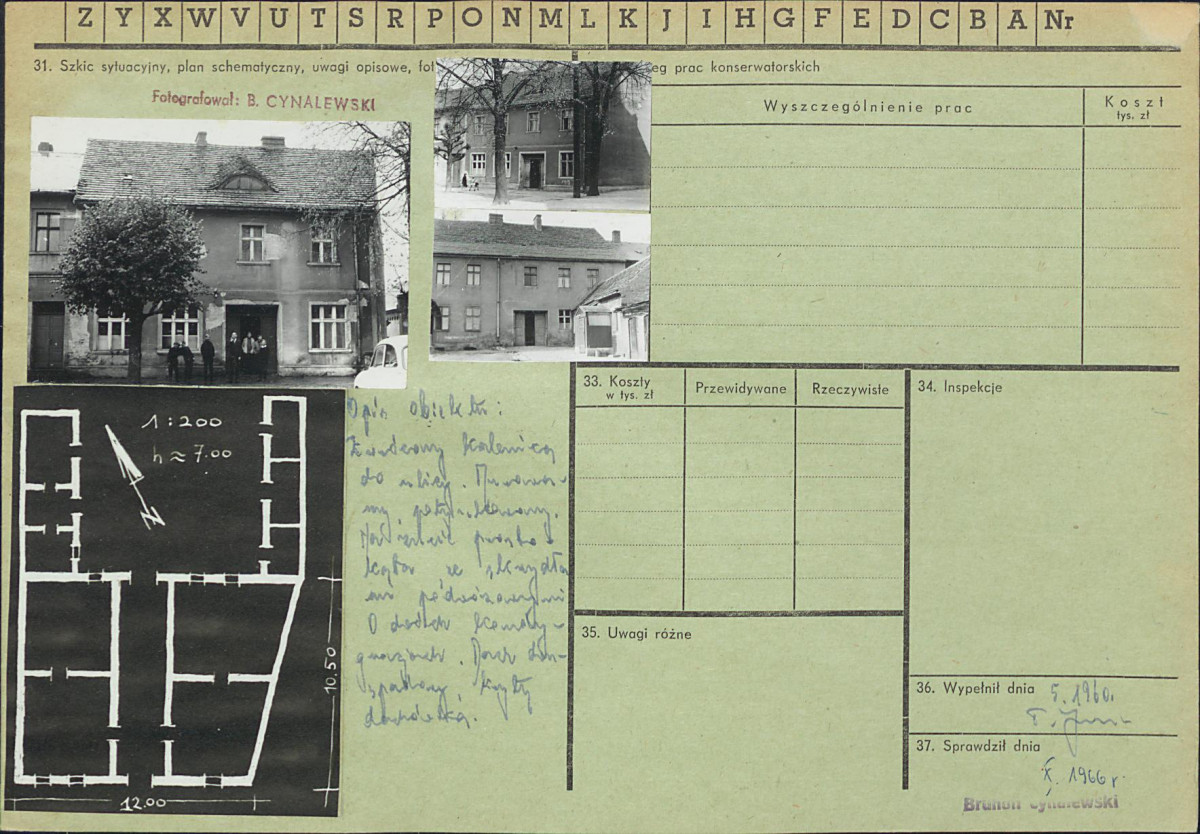 Z Y X W V U T S R P O N M L K J I H G F E D C B A Nr
31. Szkic sytuacyjny, plan schematyczny, uwagi opisowe, fot
eg prac konserwatorskich
Fotografował: B. CYNALEWSKI
Wyszczególnienie prac
Koszt
tys. zł
1:200
h ≈ 7.00
10.50
12.00
Opis obiektu:
kalenicą
do ulicy. Murowa-
ny,
prosto-
kąta ze skrzydła
mi
O dwóch kondy-
gnacjach. Dach dwu-
spadowy, kryty
dachówką.
33. Koszty
w tys. zł
Przewidywane
Rzeczywiste
34. Inspekcje
35. Uwagi różne
36. Wypełnił dnia 5.1960.
37. Sprawdził dnia
X. 1966 r.
Brunon Cynalewski